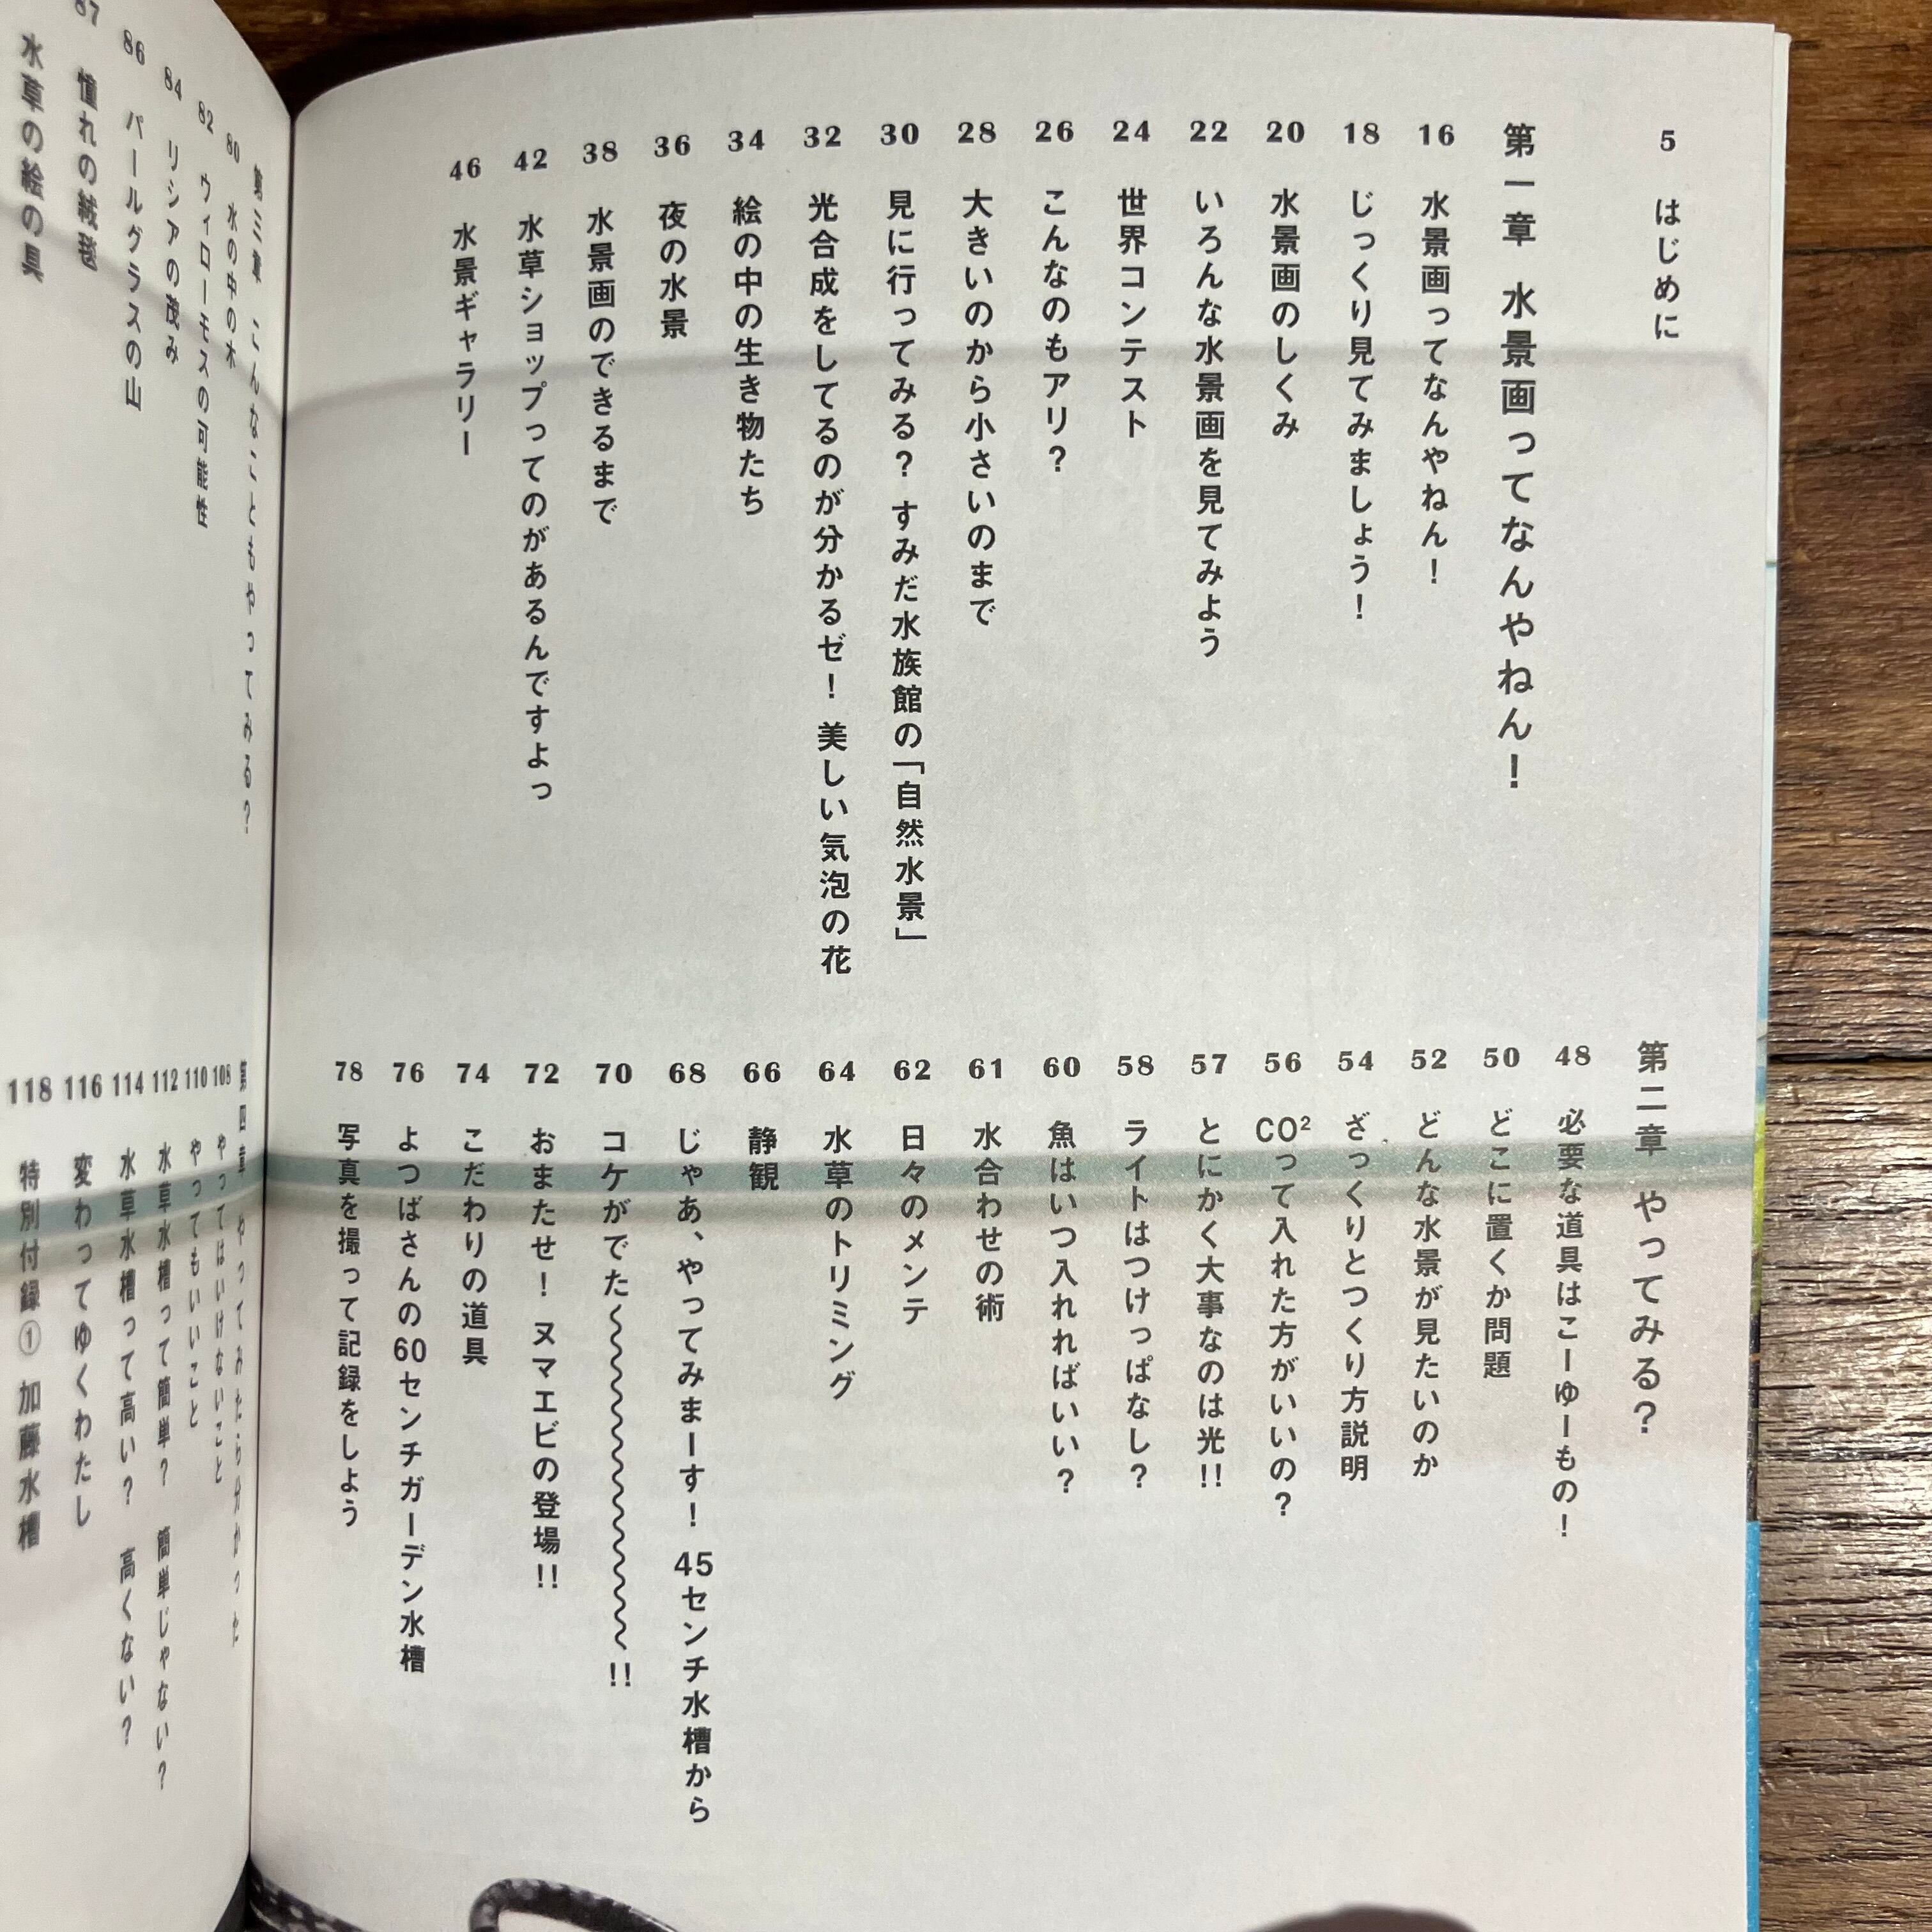 5 はじめに
第一章 水景画ってなんやねん！
16 水景画ってなんやねん！
18 じっくり見てみましょう！
20 水景画のしくみ
22 いろんな水景画を見てみよう
24 世界コンテスト
26 こんなのもアリ？
28 大きいのから小さいのまで
30 見に行ってみる？ すみだ水族館の「自然水景」
32 光合成をしてるのが分かるゼ！ 美しい気泡の花
34 絵の中の生き物たち
36 夜の水景
38 水景画のできるまで
42 水草ショップってのがあるんですよっ
46 水景ギャラリー
第二章 やってみる？
48 必要な道具はこーゆーもの！
50 どこに置くか問題
52 どんな水景が見たいのか
54 ざっくりとつくり方説明
56 CO²って入れた方がいいの？
57 とにかく大事なのは光!!
58 ライトはつけっぱなし？
60 魚はいつ入れればいい？
61 水合わせの術
62 日々のメンテ
64 水草のトリミング
66 静観
68 じゃあ、やってみまーす！ 45センチ水槽から
70 コケがでた〜〜〜〜〜〜〜〜〜〜!!
72 おまたせ！ ヌマエビの登場!!
74 こだわりの道具
76 よつばさんの60センチガーデン水槽
78 写真を撮って記録をしよう
第三章 こんなこともやってみる？
80 水の中の木
82 ウィローモスの可能性
84 リシアの茂み
86 パールグラスの山
87 憧れの絨毯
水草の絵の具
第四章 やってみたら分かった
108 やってはいけないこと
110 やってもいいこと
112 水草水槽って簡単？ 簡単じゃない？
114 水草水槽って高い？ 高くない？
116 変わってゆくわたし
118 特別付録① 加藤水槽